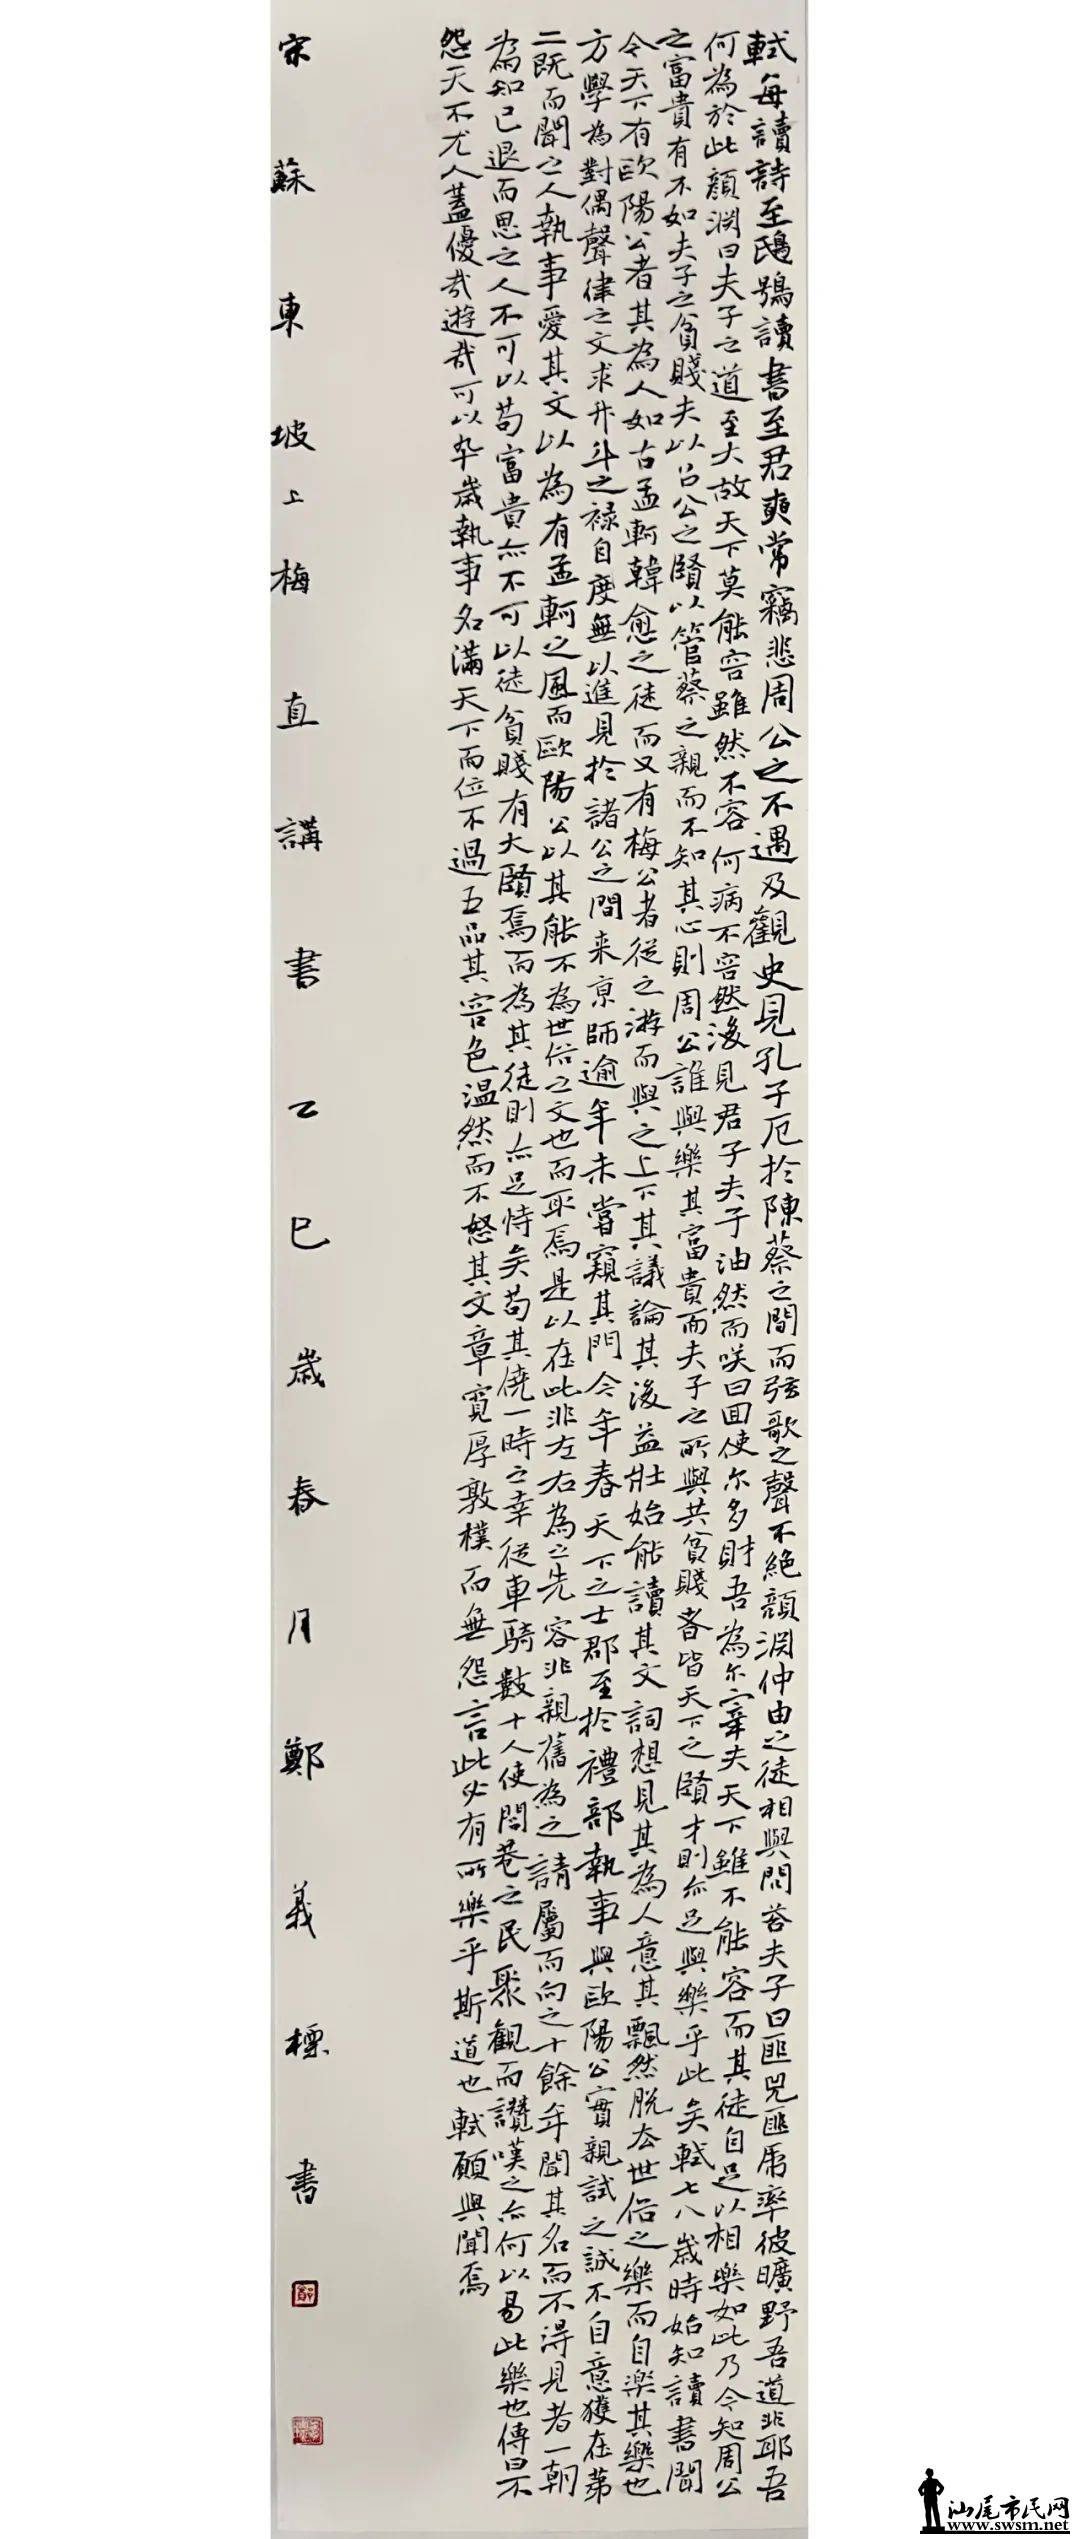 軾每讀詩至鴟鴞讀書至君奭常竊悲周公之不遇及觀史見孔子厄於陳蔡之間而弦歌之聲不絕顏淵仲由之徒相與問荅夫子曰匪兕匪虎率彼曠野吾道非耶吾
何為於此顏淵曰夫子之道至大故天下莫能容雖然不容何病不容然後見君子夫子油然而笑曰回使尔多財吾為尔宰夫天下雖不能容而其徒自足以相樂如此乃今知周公
之富貴有不如夫子之貧賤夫以召公之賢以管蔡之親而不知其心則周公誰與樂其富貴而夫子之所與共貧賤者皆天下之賢才則亦足與樂乎此矣軾七八歲時始知讀書聞
今天下有歐陽公者其為人如古孟軻韓愈之徒而又有梅公者從之游而與之上下其議論其後益壯始能讀其文詞想見其為人意其飄然脫去世俗之樂而自樂其樂也
方學為對偶聲律之文求升斗之祿自度無以進見於諸公之間来京師逾年未嘗窺其門今年春天下之士郡至於禮部執事與歐陽公實親試之誠不自意獲在第
二既而聞之人執事愛其文以為有孟軻之風而歐陽公以其能不為世俗之文也而取焉是以在此非左右為之先容非親舊為之請屬而向之十餘年聞其名而不得見者一朝
為知己退而思之人不可以苟富貴亦不可以徒貧賤有大賢焉而為其徒則亦足恃矣苟其僥一時之幸從車騎數十人使閭巷之民聚觀而讚嘆之亦何以易此樂也傳曰不
怨天不尤人蓋優哉遊哉可以卒歲執事名滿天下而位不過五品其容色温然而不怒其文章寬厚敦樸而無怨言此必有所樂乎斯道也軾願與聞焉
宋蘇東坡上梅直講書乙巳歲春月鄭義標書
鄭
汕尾市民网
www.swsm.net